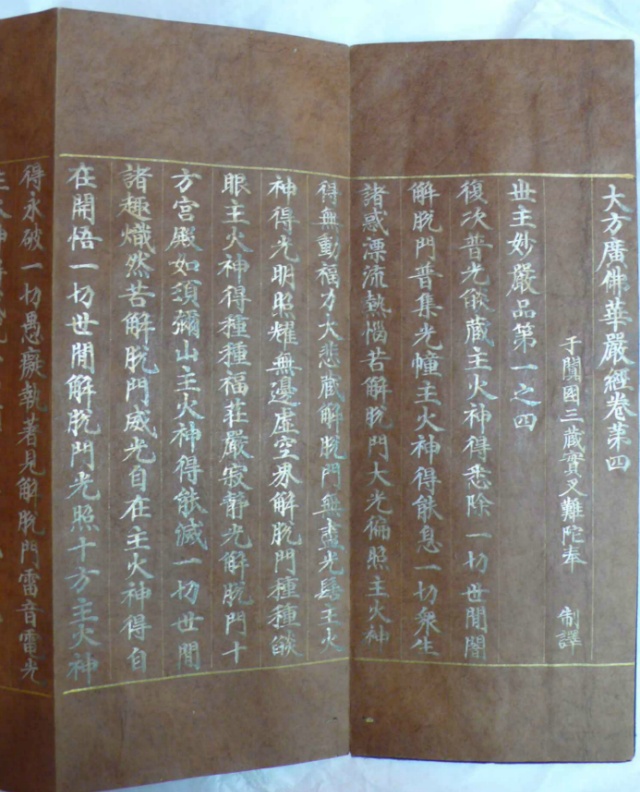 大方廣佛華嚴經卷第四
于闐國三藏實叉難陀奉 制譯
世主妙嚴品第一之四
復次普光燄藏主火神得悉除一切世間闇
解脫門普集光幢主火神得能息一切衆生
諸惑漂流熱惱苦解脫門大光徧照主火神
得無動福力大悲藏解脫門無盡光髻主火
神得光明照耀無邊虛空界解脫門種種燄
眼主火神得種種福莊嚴寂靜光解脫門十
方宮殿如須彌山主火神得能滅一切世間
諸趣熾然苦解脫門威光自在主火神得自
在開悟一切世間解脫門光照十方主火神
得永破一切愚癡執著見解脫門雷音電光
主火神得